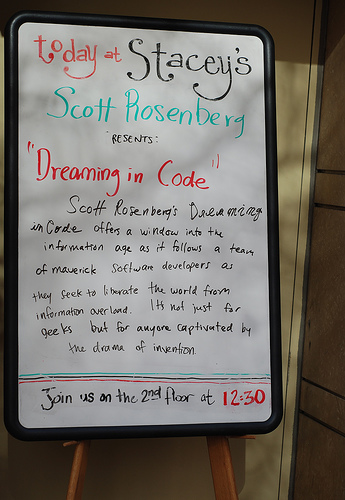 today at Stacey's
Scott Rosenberg
RESENTS:
"Dreaming in Code"
Scott Rosenberg's Dreaming
in Corde offers a window into the
information age as it follows a team
of maverick software developers as
they seek to liberate the world from
information overload. It's not just for
geeks but for anyone captivated by
the drama of invention.
Join us on the 2nd floor at 12:30